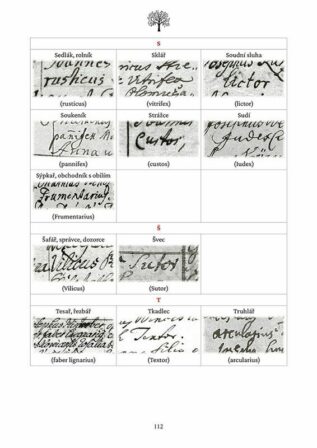 S
Sedlák, rolník
Sklář
Soudní sluha
Joannes
rusticus
Vitrifex
lictor
(rusticus)
(vitrifex)
(lictor)
Soukeník
Strážce
Sudí
pannifex
Anna
Custos,
Judex
(pannifex)
(custos)
(Iudex)
Sýpkař, obchodník s obilím
Frumentarius
(Frumentarius)
Š
Šafář, správce, dozorce
Švec
Vilicus
Sutor
(Vilicus)
(Sutor)
T
Tesař, řezbář
Tkadlec
Truhlář
faber
Textor
arcularius
(faber lignarius)
(Textor)
(arcularius)
112